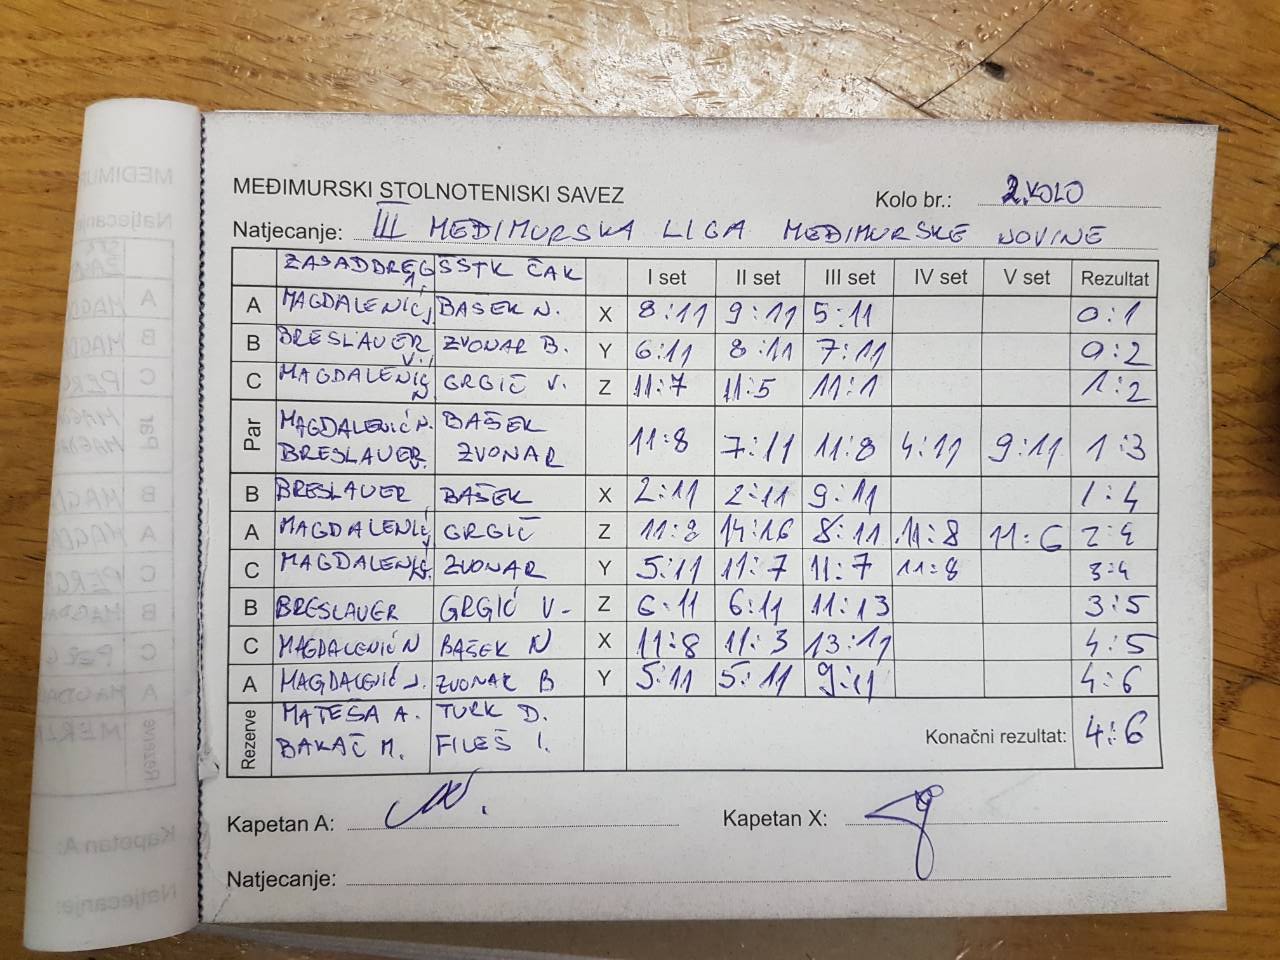 MEĐIMURSKI STOLNOTENISKI SAVEZ
Kolo br.: 2. KOLO
Natjecanje: III MEĐIMURSKA LIGA MEĐIMURSKE NOVINE
SSTK ČAK I set II set III set IV set V set Rezultat
A MAGDALENIĆ J. BAŠEK N. X 8:11 9:11 5:11 0:1
B BRESLAUER V. ZVONAR B. Y 6:11 8:11 7:11 0:2
C MAGDALENIĆ N GRGIĆ V. Z 11:7 11:5 11:1 1:2
Par MAGDALENIĆ N. BAŠEK
BRESLAUER V. ZVONAR 11:8 7:11 11:8 4:11 9:11 1:3
B BRESLAUER BAŠEK X 2:11 2:11 9:11 1:4
A MAGDALENIĆ J GRGIĆ Z 11:8 14:16 8:11 11:8 11:6 2:4
C MAGDALENIĆ N. ZVONAR Y 5:11 11:7 11:7 11:8 3:4
B BRESLAUER GRGIĆ V- Z 6:11 6:11 11:13 3:5
C MAGDALENIĆ N BAŠEK N X 11:8 11:3 13:11 4:5
A MAGDALENIĆ J. ZVONAR B Y 5:11 5:11 9:11 4:6
Rezerve MATEŠA A. TURK D.
BAKAČ M. FILEŠ I. Konačni rezultat: 4:6
Kapetan A: Kapetan X:
Natjecanje: